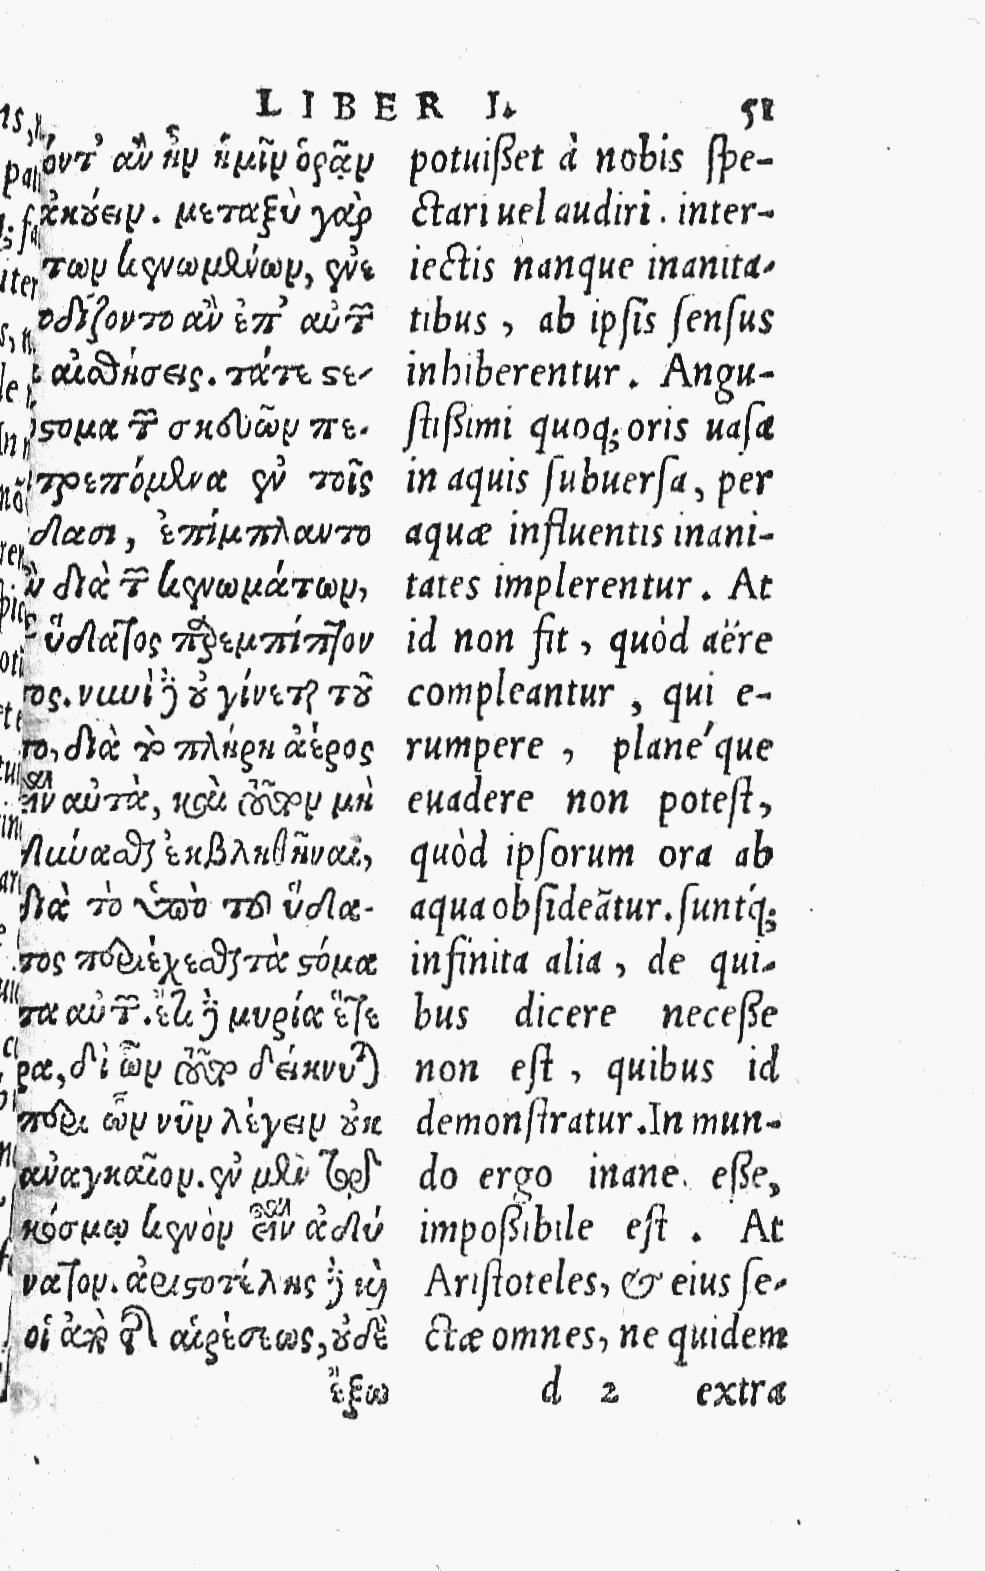 LIBER I. 51
όντ' ἂν ἦν ἡμῖν ὁρᾷν
ἀκούειν. μεταξὺ γὰρ
των κενωμένων, ἐνε
οδίζοντο ἂν ἐπ' αὐτῶν
αἰσθήσεις. τάτε στε-
στομα τῶν σκευῶν πε-
τρεπόμενα ἐν τοῖς
δασι, ἐπίμπλαντο
ὰν διὰ τῶν κενωμάτων,
ὕδατος παρεμπίπτον
τος. νυνὶ δὲ οὐ γίνεται τοῦ
το, διὰ τὸ πλήρη ἀέρος
εἶναι αὐτὰ, καὶ τοῦτον μὴ
δύνασθαι ἐκβληθῆναι,
διὰ τὸ ὑπὸ τοῦ ὕδα-
τος περιέχεσθαι τὰ στόμα
τα αὐτῶν. ἔτι δὲ μυρία ἕτε
ρα, δι ὧν τοῦτο δείκνυται
περὶ ὧν νῦν λέγειν οὐκ
ἀναγκαῖον. ἐν μὲν τῷδε
κόσμῳ κενὸν εἶναι ἀδύ
νατον. ἀριστοτέλης δὲ καὶ
οἱ ἀπὸ τῆς αἱρέσεως, οὐδὲ
ἔξω
potuißet à nobis spe-
ctari uel audiri. inter-
iectis nanque inanita-
tibus, ab ipsis sensus
inhiberentur. Angu-
stißimi quoq; oris uasa
in aquis subuersa, per
aquæ influentis inani-
tates implerentur. At
id non fit, quòd aëre
compleantur, qui e-
rumpere, plane'que
euadere non potest,
quòd ipsorum ora ab
aqua obsideãtur. suntq́;
infinita alia, de qui-
bus dicere neceße
non est, quibus id
demonstratur. In mun-
do ergo inane eße,
impoßibile est. At
Aristoteles, & eius se-
ctæ omnes, ne quidem
d 2 extra